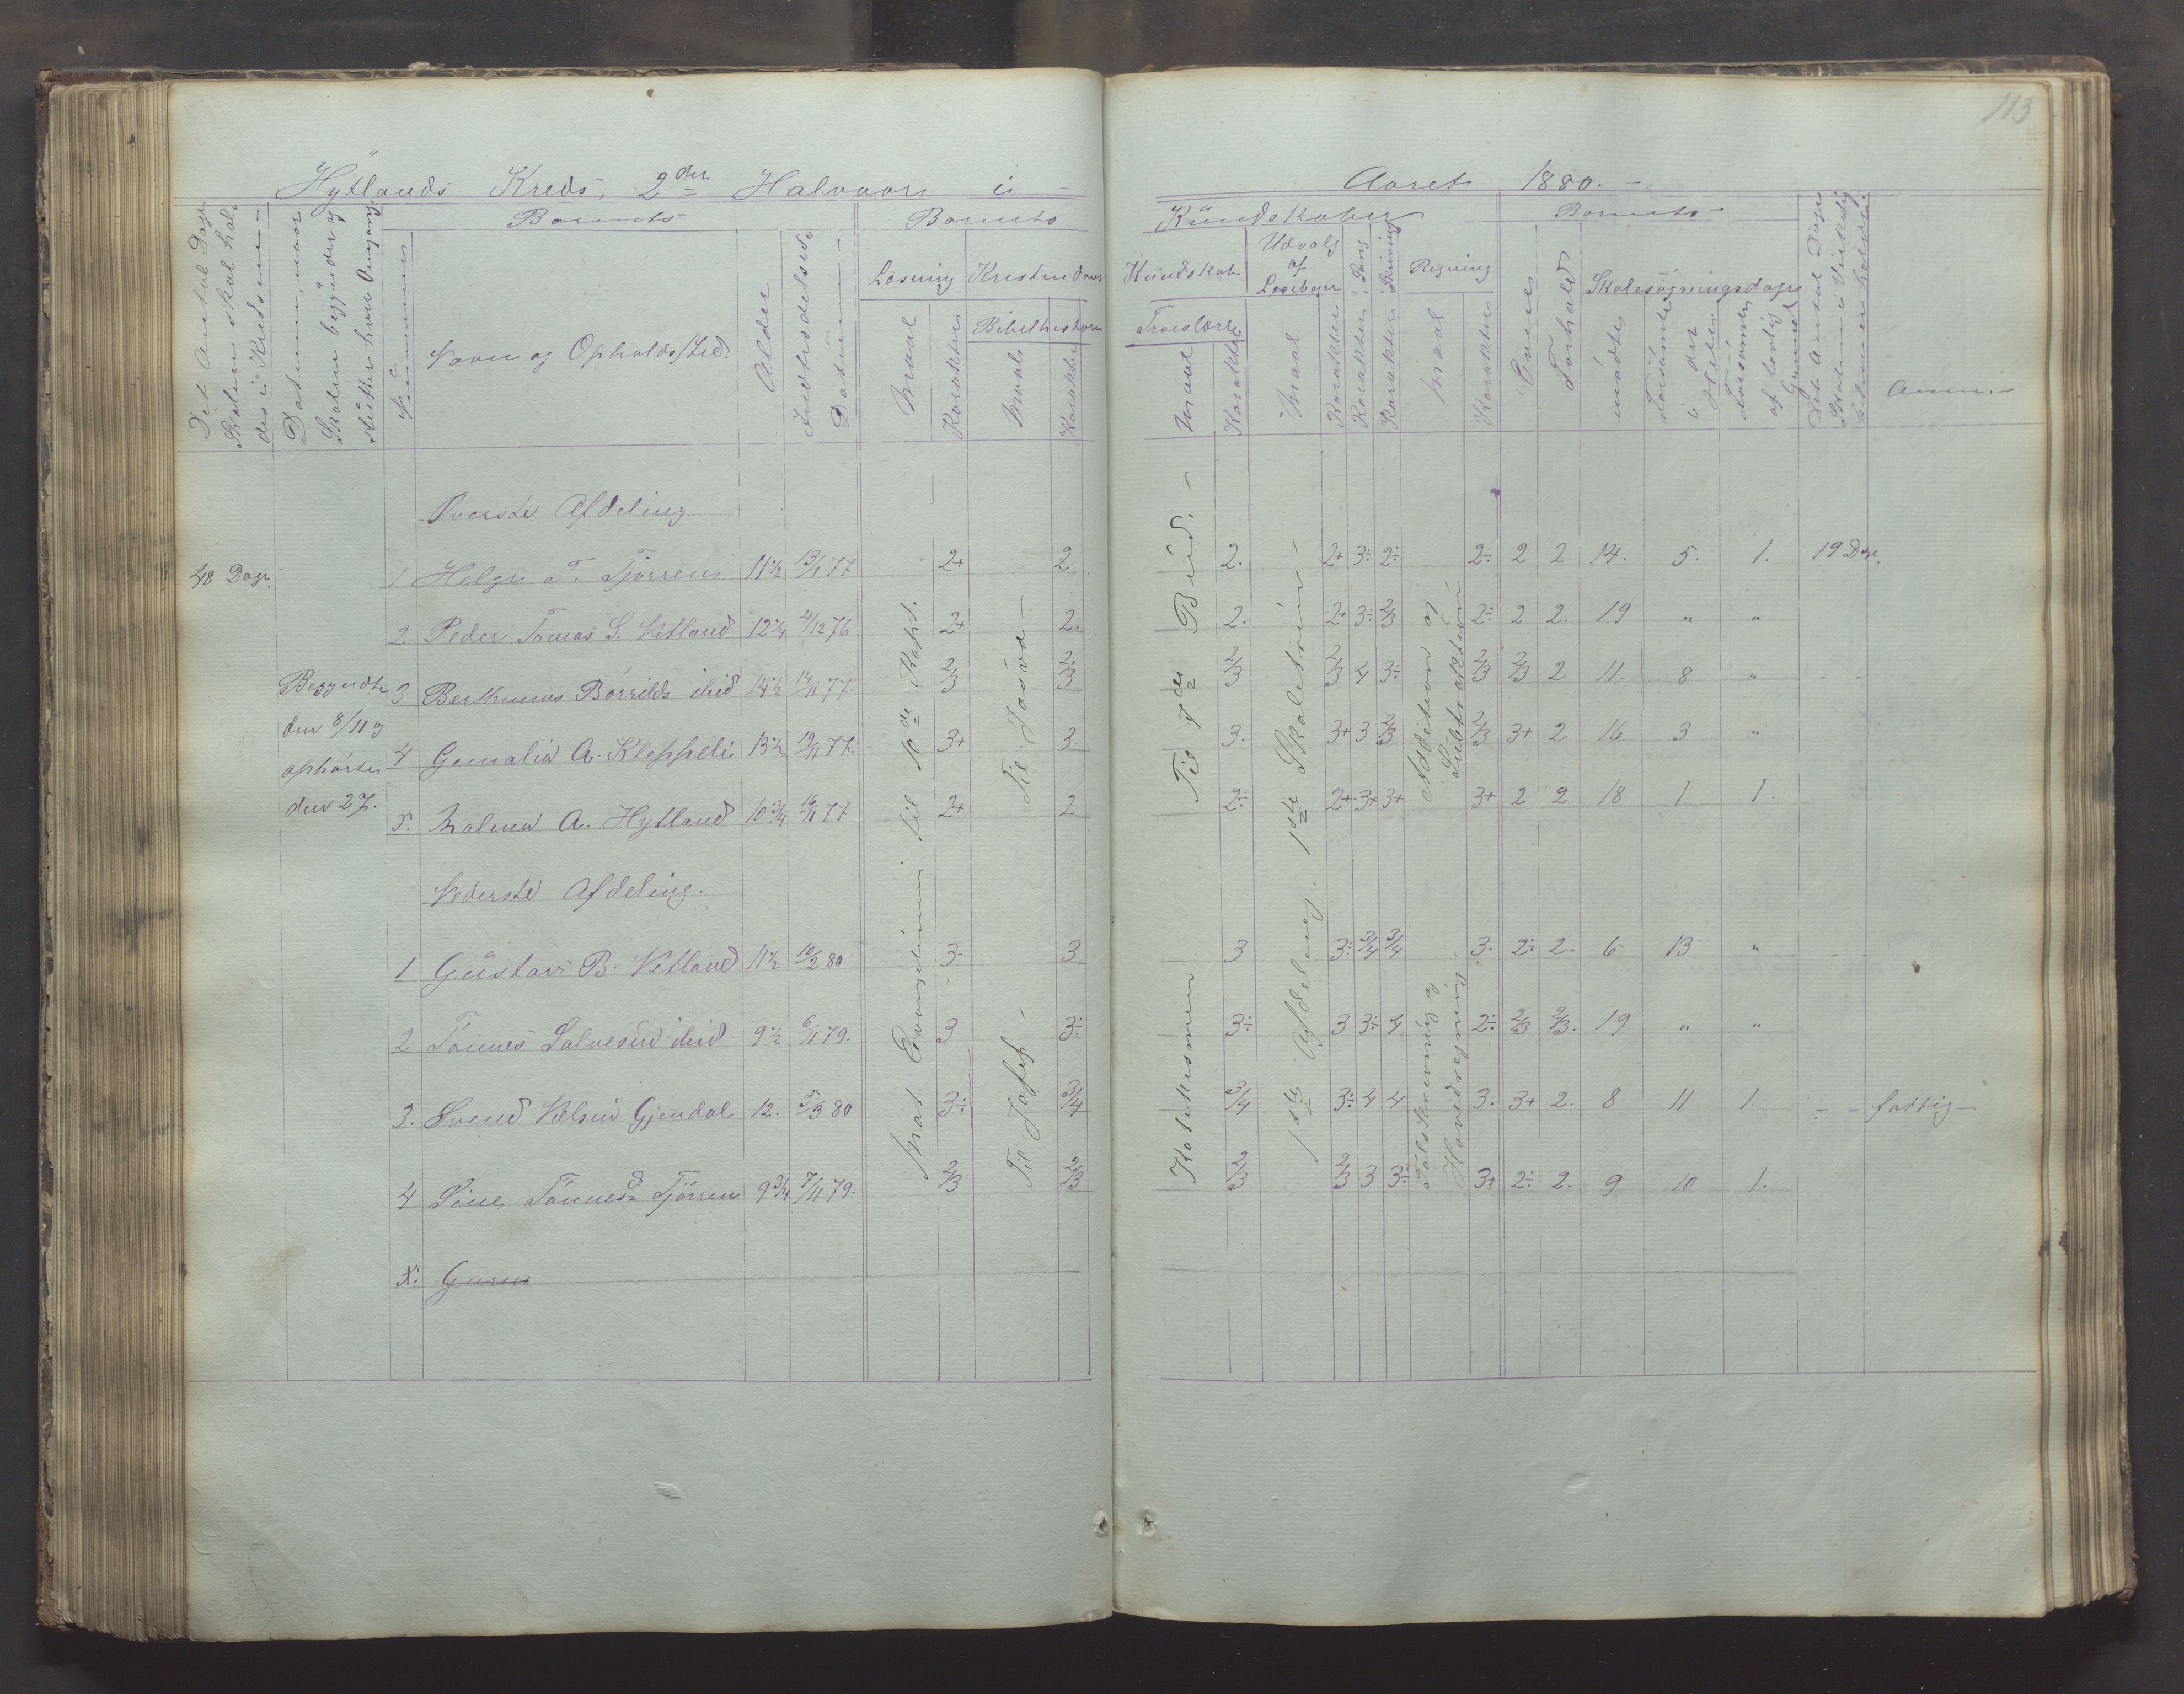 113
Hytlands Kreds, 2den Halvaar i Aaret 1880.
Det Antal Dage Skolen skal holdes i Kredsen
Datum, naar Skolen begynder og slutter hver Omgang
Nummer
Barnets
Navn og Opholdssted
Alder
Indtrædelses Datum
Barnets Kundskaber
Læsning
Maal
Karakter
Kristendoms Kundskab
Bibelhistorie
Maal
Karakter
Troeslære
Maal
Karakter
Udvalg af Læsebogen
Maal
Karakter
Sang
Karakter
Skrivning
Karakter
Regning
Maal
Karakter
Barnets
Evner
Forhold
Skolesøgningsdage
mødte
forsømte i det Hele
forsømte af lovlig Grund
Det Antal Dage Skolen i Virkelig
Anm
Øverste Afdeling
48 Dage. 1 Helge T. Tjørren 11 1/2 13/1 77 2+ 2. 2. 2+ 3÷ 2÷ 2÷ 2 2. 14. 5. 1. 19 Dage.
2 Peder Tomas S. Vetland 12 1/4 4/12 76 2+ 2. 2. 2+ 3÷ 2/3 2÷ 2 2. 19 " "
Begyndte 3 Børrilds ibid 14 1/2 14/11 77. 2/3 2/3 2/3 2/3 4 3÷ 2/3 2/3 2 11. 8 "
den 8/11 og
4 A. Kleppeli 13 1/2 19/11 77. 3+ 3. 3. 3+ 3 2/3 2/3 3+ 2 16 3 "
ophørte
den 27.
5. Malena A. Hytland 10 3/4 16/11 77 2+ 2 2÷ 2+ 3+ 3+ 3+ 2 2 18 1 1.
Mat. Evangelium til 10de Kapt.
Til Josva
Til 7de Bud.
1ste Afdeling, 1ste Skoletrin
Addition og Subtraktion
Nederste Afdeling.
1 Gustav B. Vetland 11 1/2 10/2 80 3 3 3 3÷ 3/4 3/4 3. 2÷ 2. 6 13 "
2 Tønnes Salvesen ibid 9 1/2 6/11 79. 3 3÷ 3÷ 3 3÷ 4 2÷ 2/3 2/3. 19 " "
3. Svend Nelsen Gjendal 12. 5/3 80 3÷ 3/4 3/4 3÷ 4 4 3. 3+ 2. 8 11 1. fattig
4 Sine Tønnesd Tjørren 9 3/4 7/11 79. 2/3 2/3 2/3 2/3 3 3÷ 3+ 2÷ 2. 9 10 1.
Til Josef
Katekismen
Talskrivning og Hovedregning